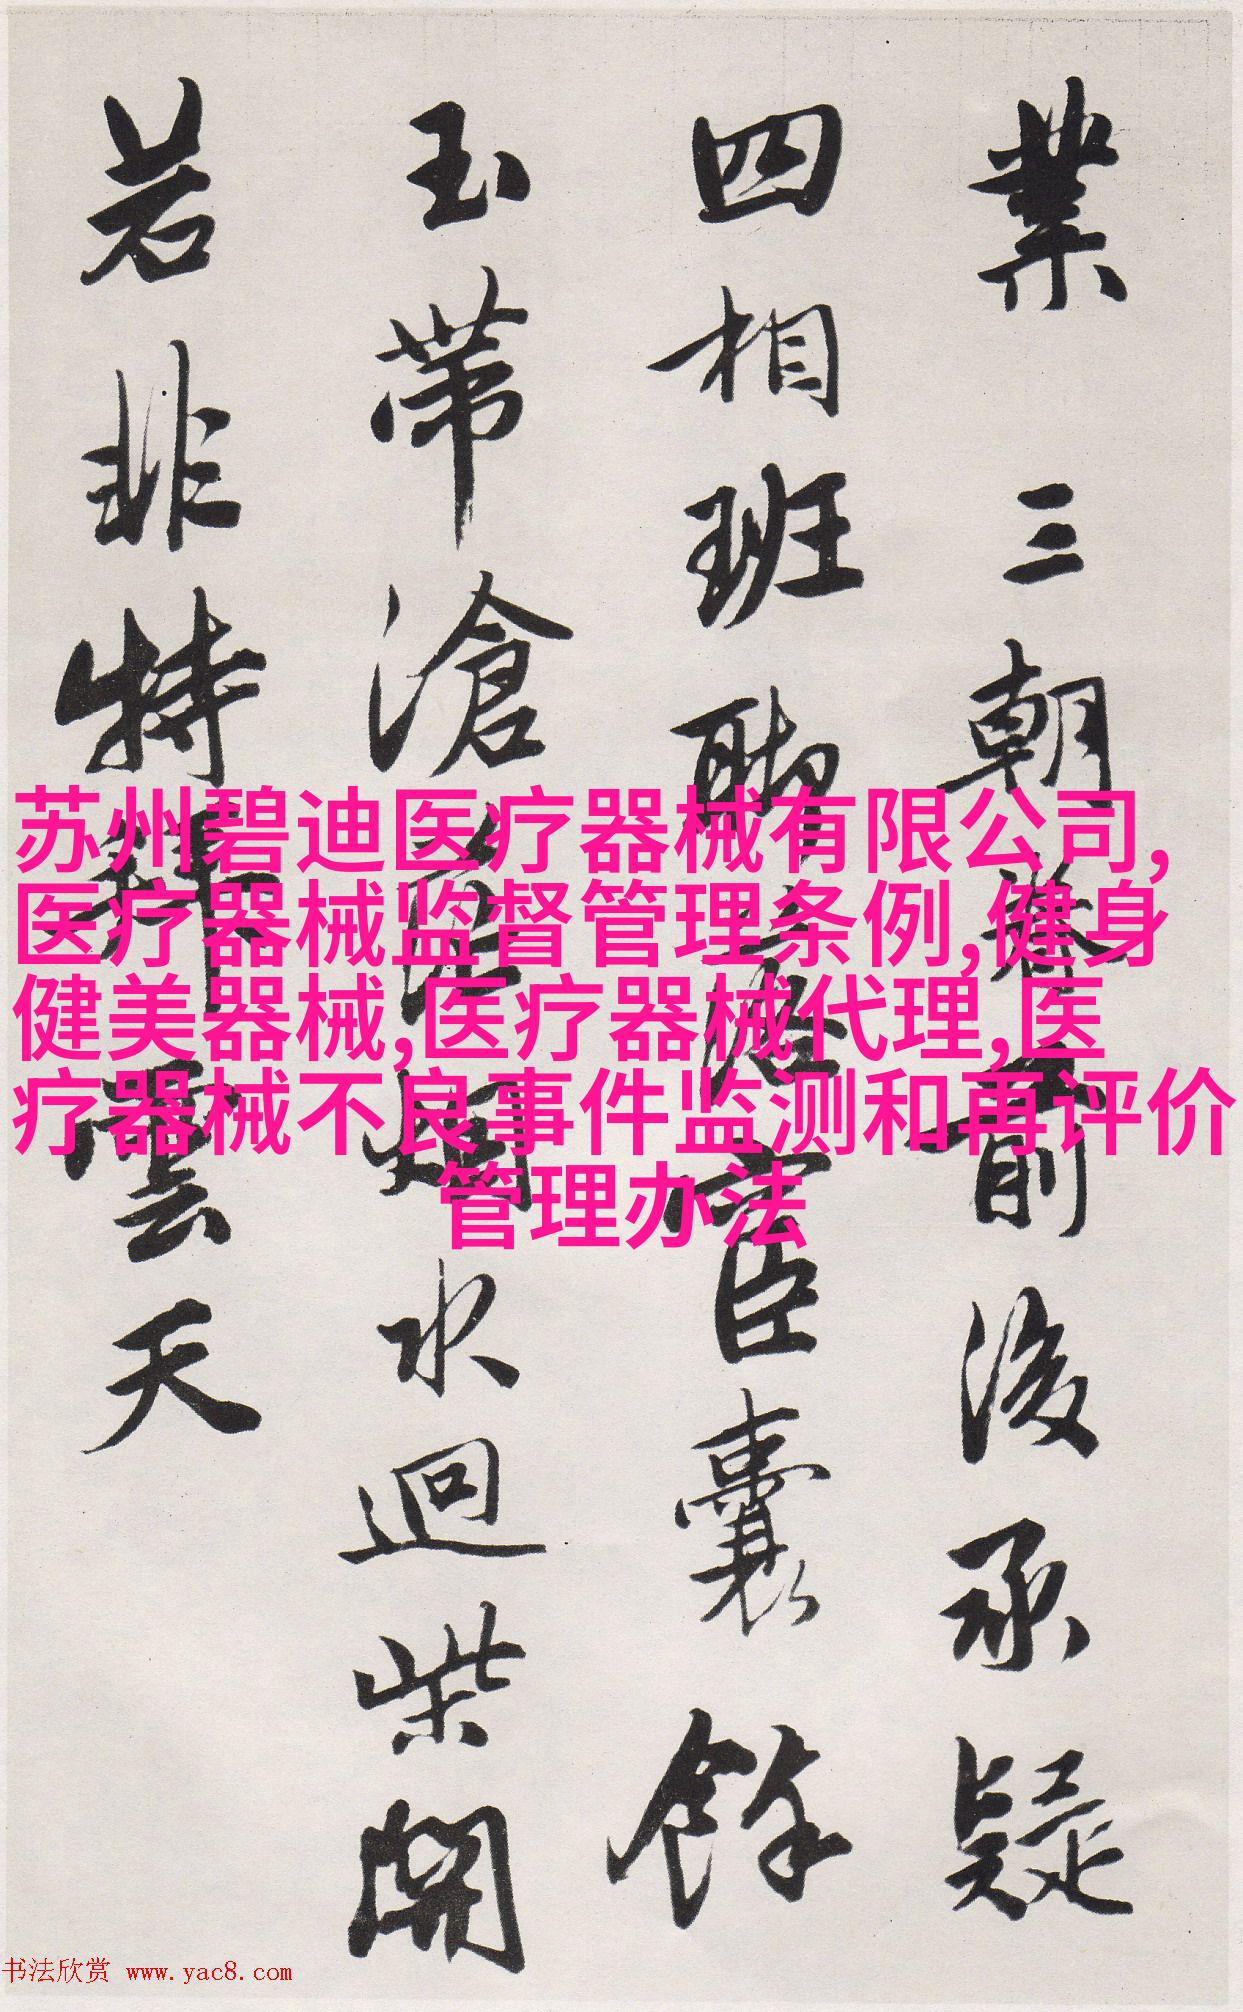 業三朝前後承疑
四相班聯臣囊餘
玉帶滄烟水迴柴開
若非特雲天
苏州碧迪医疗器械有限公司,
医疗器械监督管理条例,健身
健美器械,医疗器械代理,医
疗器械不良事件监测和再评价
管理办法
书法欣赏 www.yac8.com